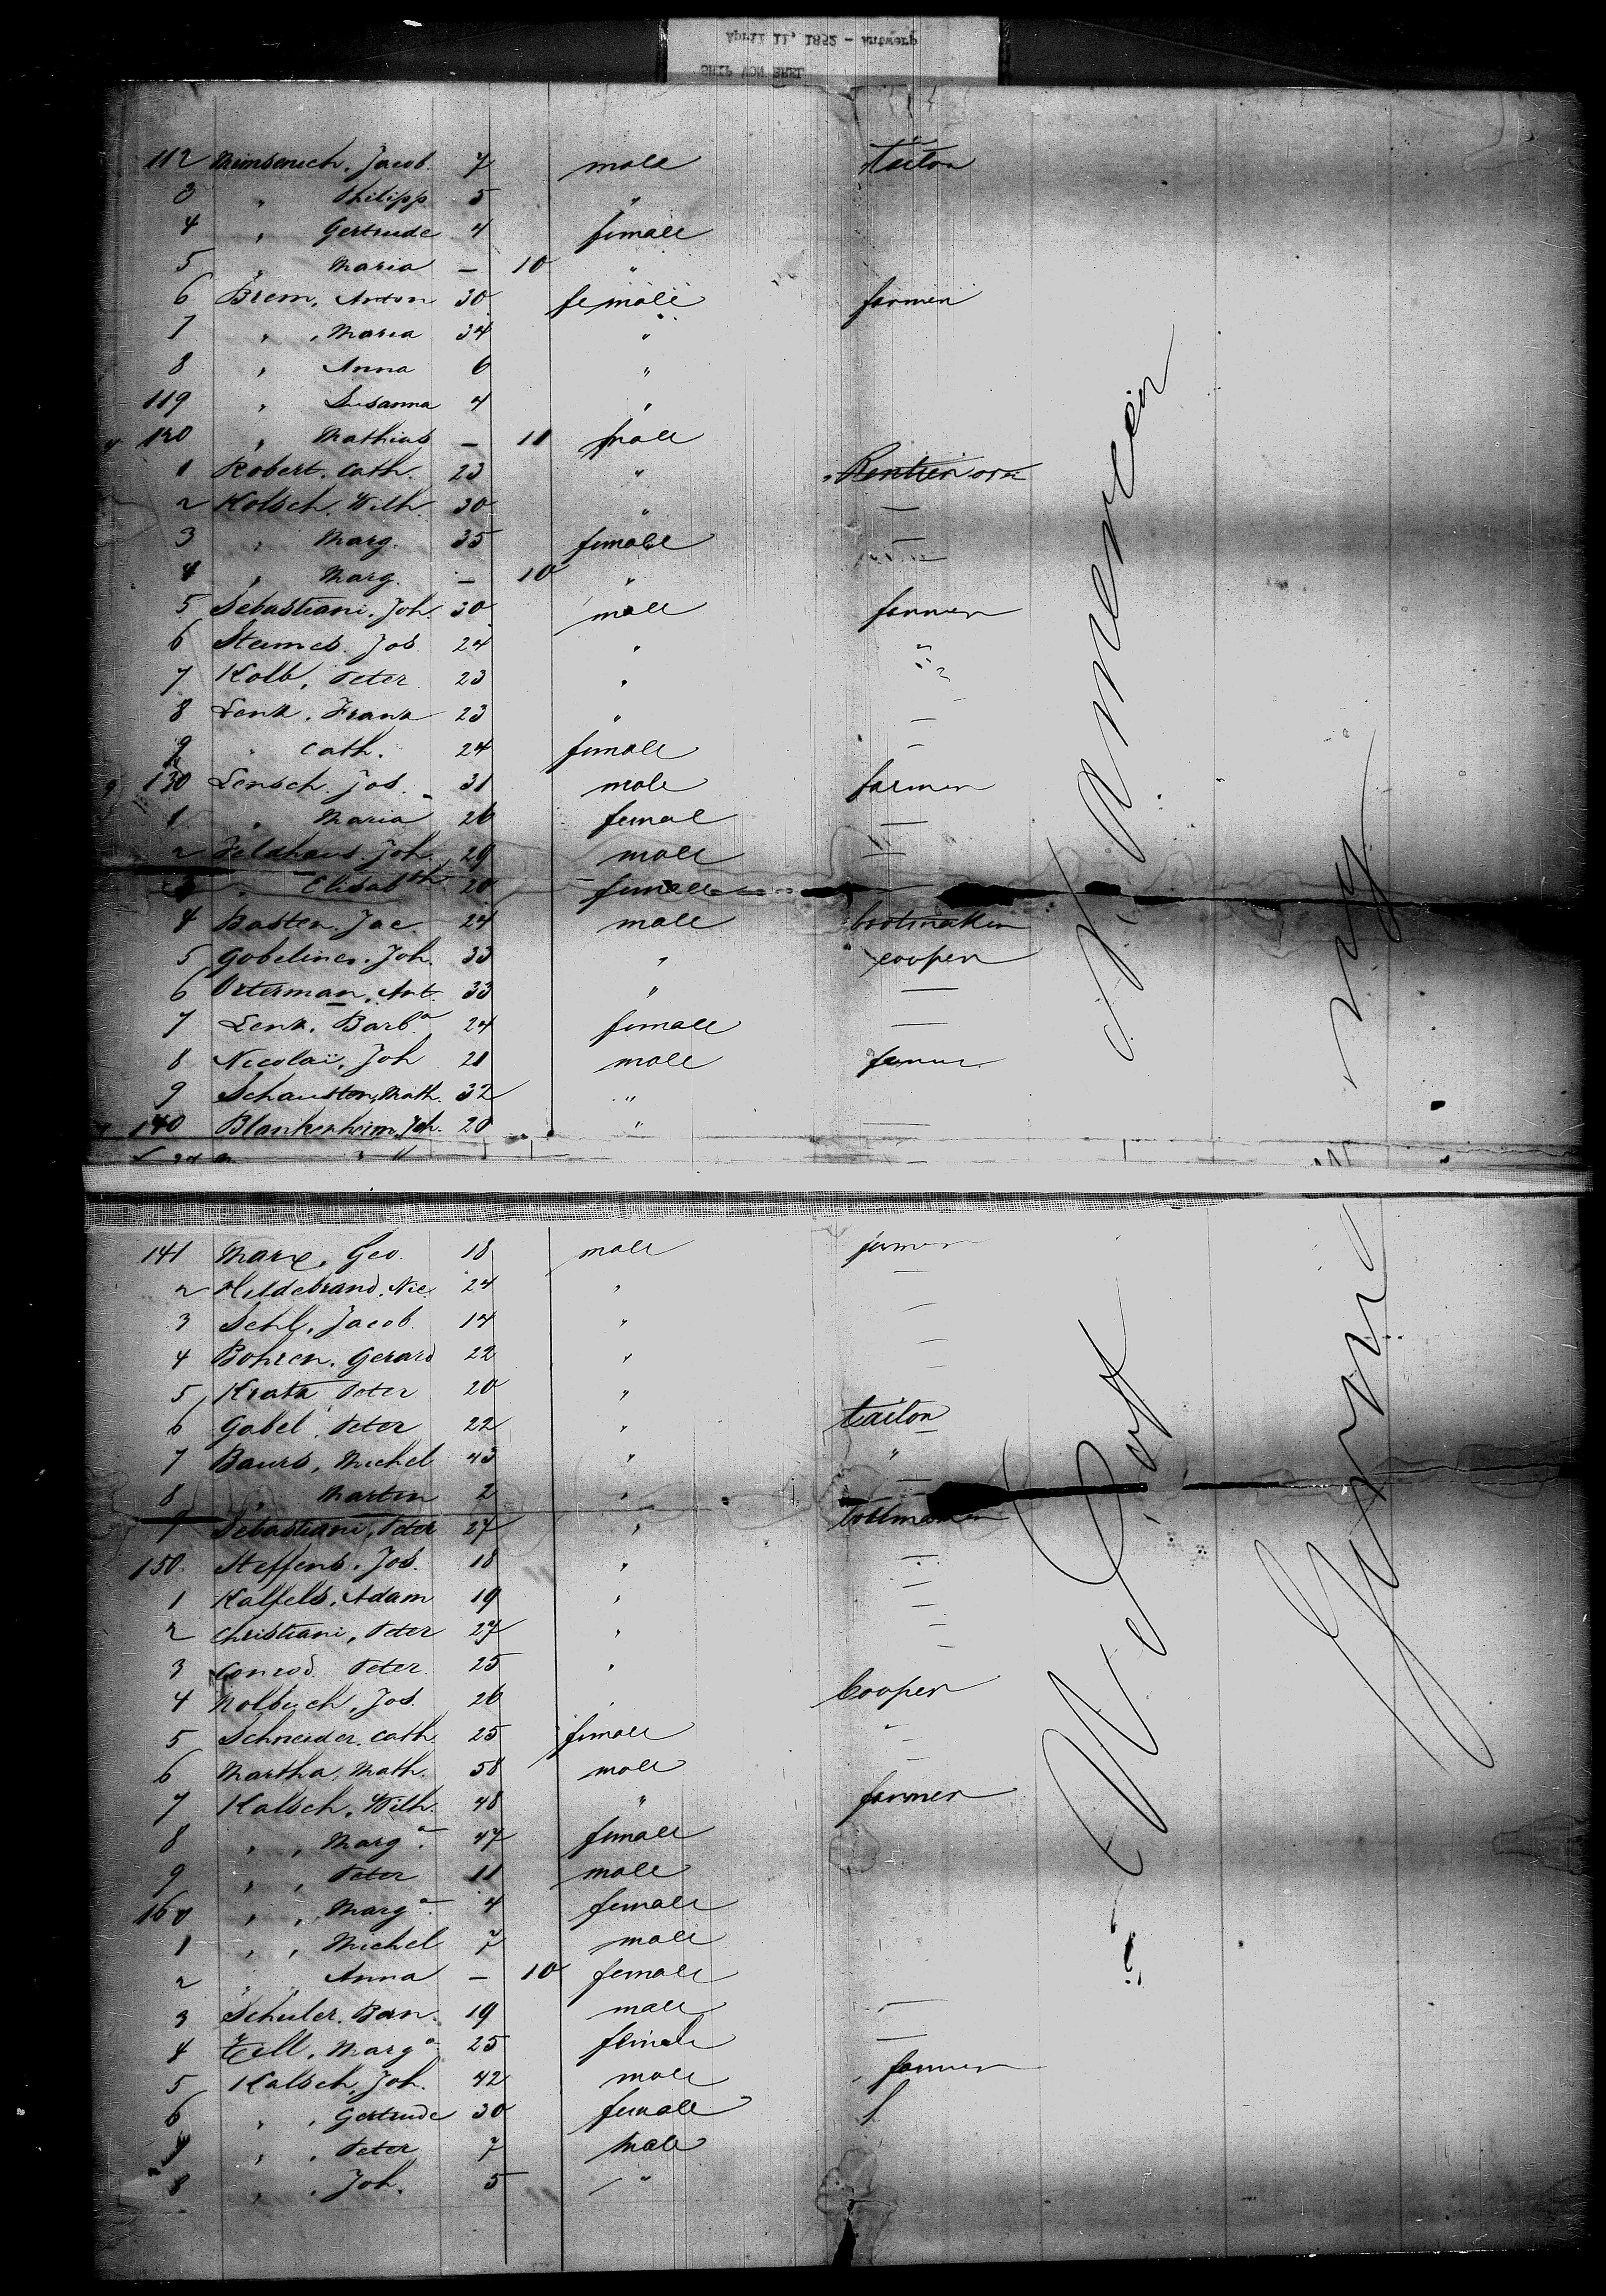 April 11, 1852 - Antwerp
SHIP VON BREL
112 Mimbruch, Jacob. 7 male tailor
3 " Philipp 5 "
4 " Gertrude 4 female
5 " Maria — 10 "
6 Brem, Anton 30 female farmer
7 " Maria 34 "
8 " Anna 6 "
119 " Susanna 4 "
120 " Mathias — 11 male
1 Robert. Cath. 23 "
2 Kolsch. Wilh. 30 " —
3 " Marg. 35 female —
4 " Marg. — 10 "
5 Sebastiani. Joh. 30 male farmer
6 Steimes. Jos. 24 " "
7 Kolb, Peter 23 "
8 Lenz. Franz 23 " —
9 " Cath. 24 female —
130 Lensch. Jos. 31 male farmer
1 " Maria 26 femal —
2 Feldhaus. Joh. 29 male —
3 " Elisabth 20 female
4 Basten. Jac. 24 male bootmaker
5 Gobelines. Joh. 33 " cooper
6 Osterman, Ant. 33 " —
7 Lenz. Barba 24 female —
8 Nicolai, Joh 21 male farmer
9 Schauston, Math. 32 "
140 Blankenheim, Joh. 20 " —
141 Marx, Geo. 18 male farmer
2 Hildebrand. Nic. 24 " —
3 Sehl, Jacob 14 " —
4 Bohren. Gerard 22 " —
5 Kratz Peter 20 "
6 Gobel. Peter 22 " tailor
7 Baurs, Michel 43 " "
8 " Martin 2 " —
9 Sebastiani, Peter 27 " bootmaker
150 Steffens. Jos. 18 " —
1 Kalfels, Adam 19 " —
2 Christiani, Peter 27 " —
3 Conrod. Peter. 25 " —
4 Nolbuch, Jos. 26 " Cooper
5 Schneider. Cath 25 female "
6 Martha, Math. 58 male —
7 Kalsch, Wilh. 48 " farmer
8 " " Marga. 47 female
9 " " Peter 11 male
160 " " Marga. 4 female
1 " " Michel 7 male
2 " " Anna — 10 female
3 Schuler. Bern. 19 male —
4 Zell, Marga 25 female —
5 Kalsch, Joh. 42 male farmer
6 " " Gertrude 30 female
" " Peter 7 male
8 " " Joh. 5 "